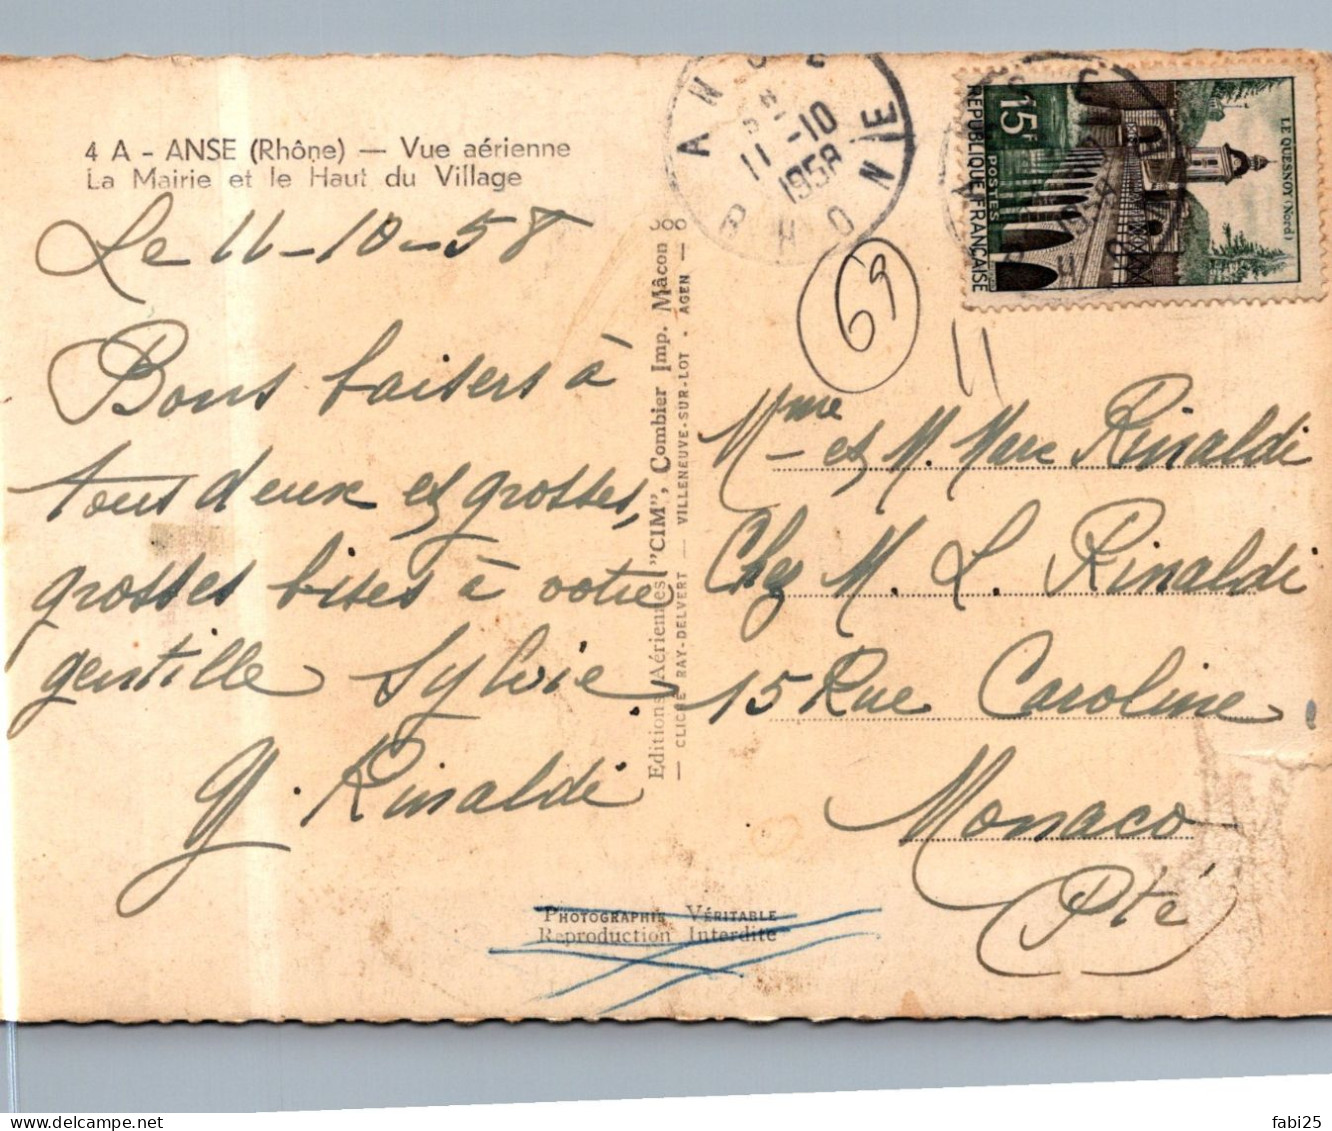 4 A - ANSE (Rhône) — Vue aérienne
La Mairie et le Haut du Village
Le 11-10-58
Bons baisers à
tous deux et grosses,
grosses bises à votre
gentille Sylvie
G. Rinaldi
Editions Aériennes "CIM", Combier Imp. Mâcon
— CLICHÉ RAY-DELVERT — VILLENEUVE-SUR-LOT - AGEN —
PHOTOGRAPHIE VÉRITABLE
Reproduction Interdite
ANSE
11-10
1958
RHONE
15F
POSTES
REPUBLIQUE FRANÇAISE
LE QUESNOY (Nord)
69
11
Mme et M. Marc Rinaldi
Chez M. L. Rinaldi
15 Rue Caroline
Monaco
Pté
fabi25